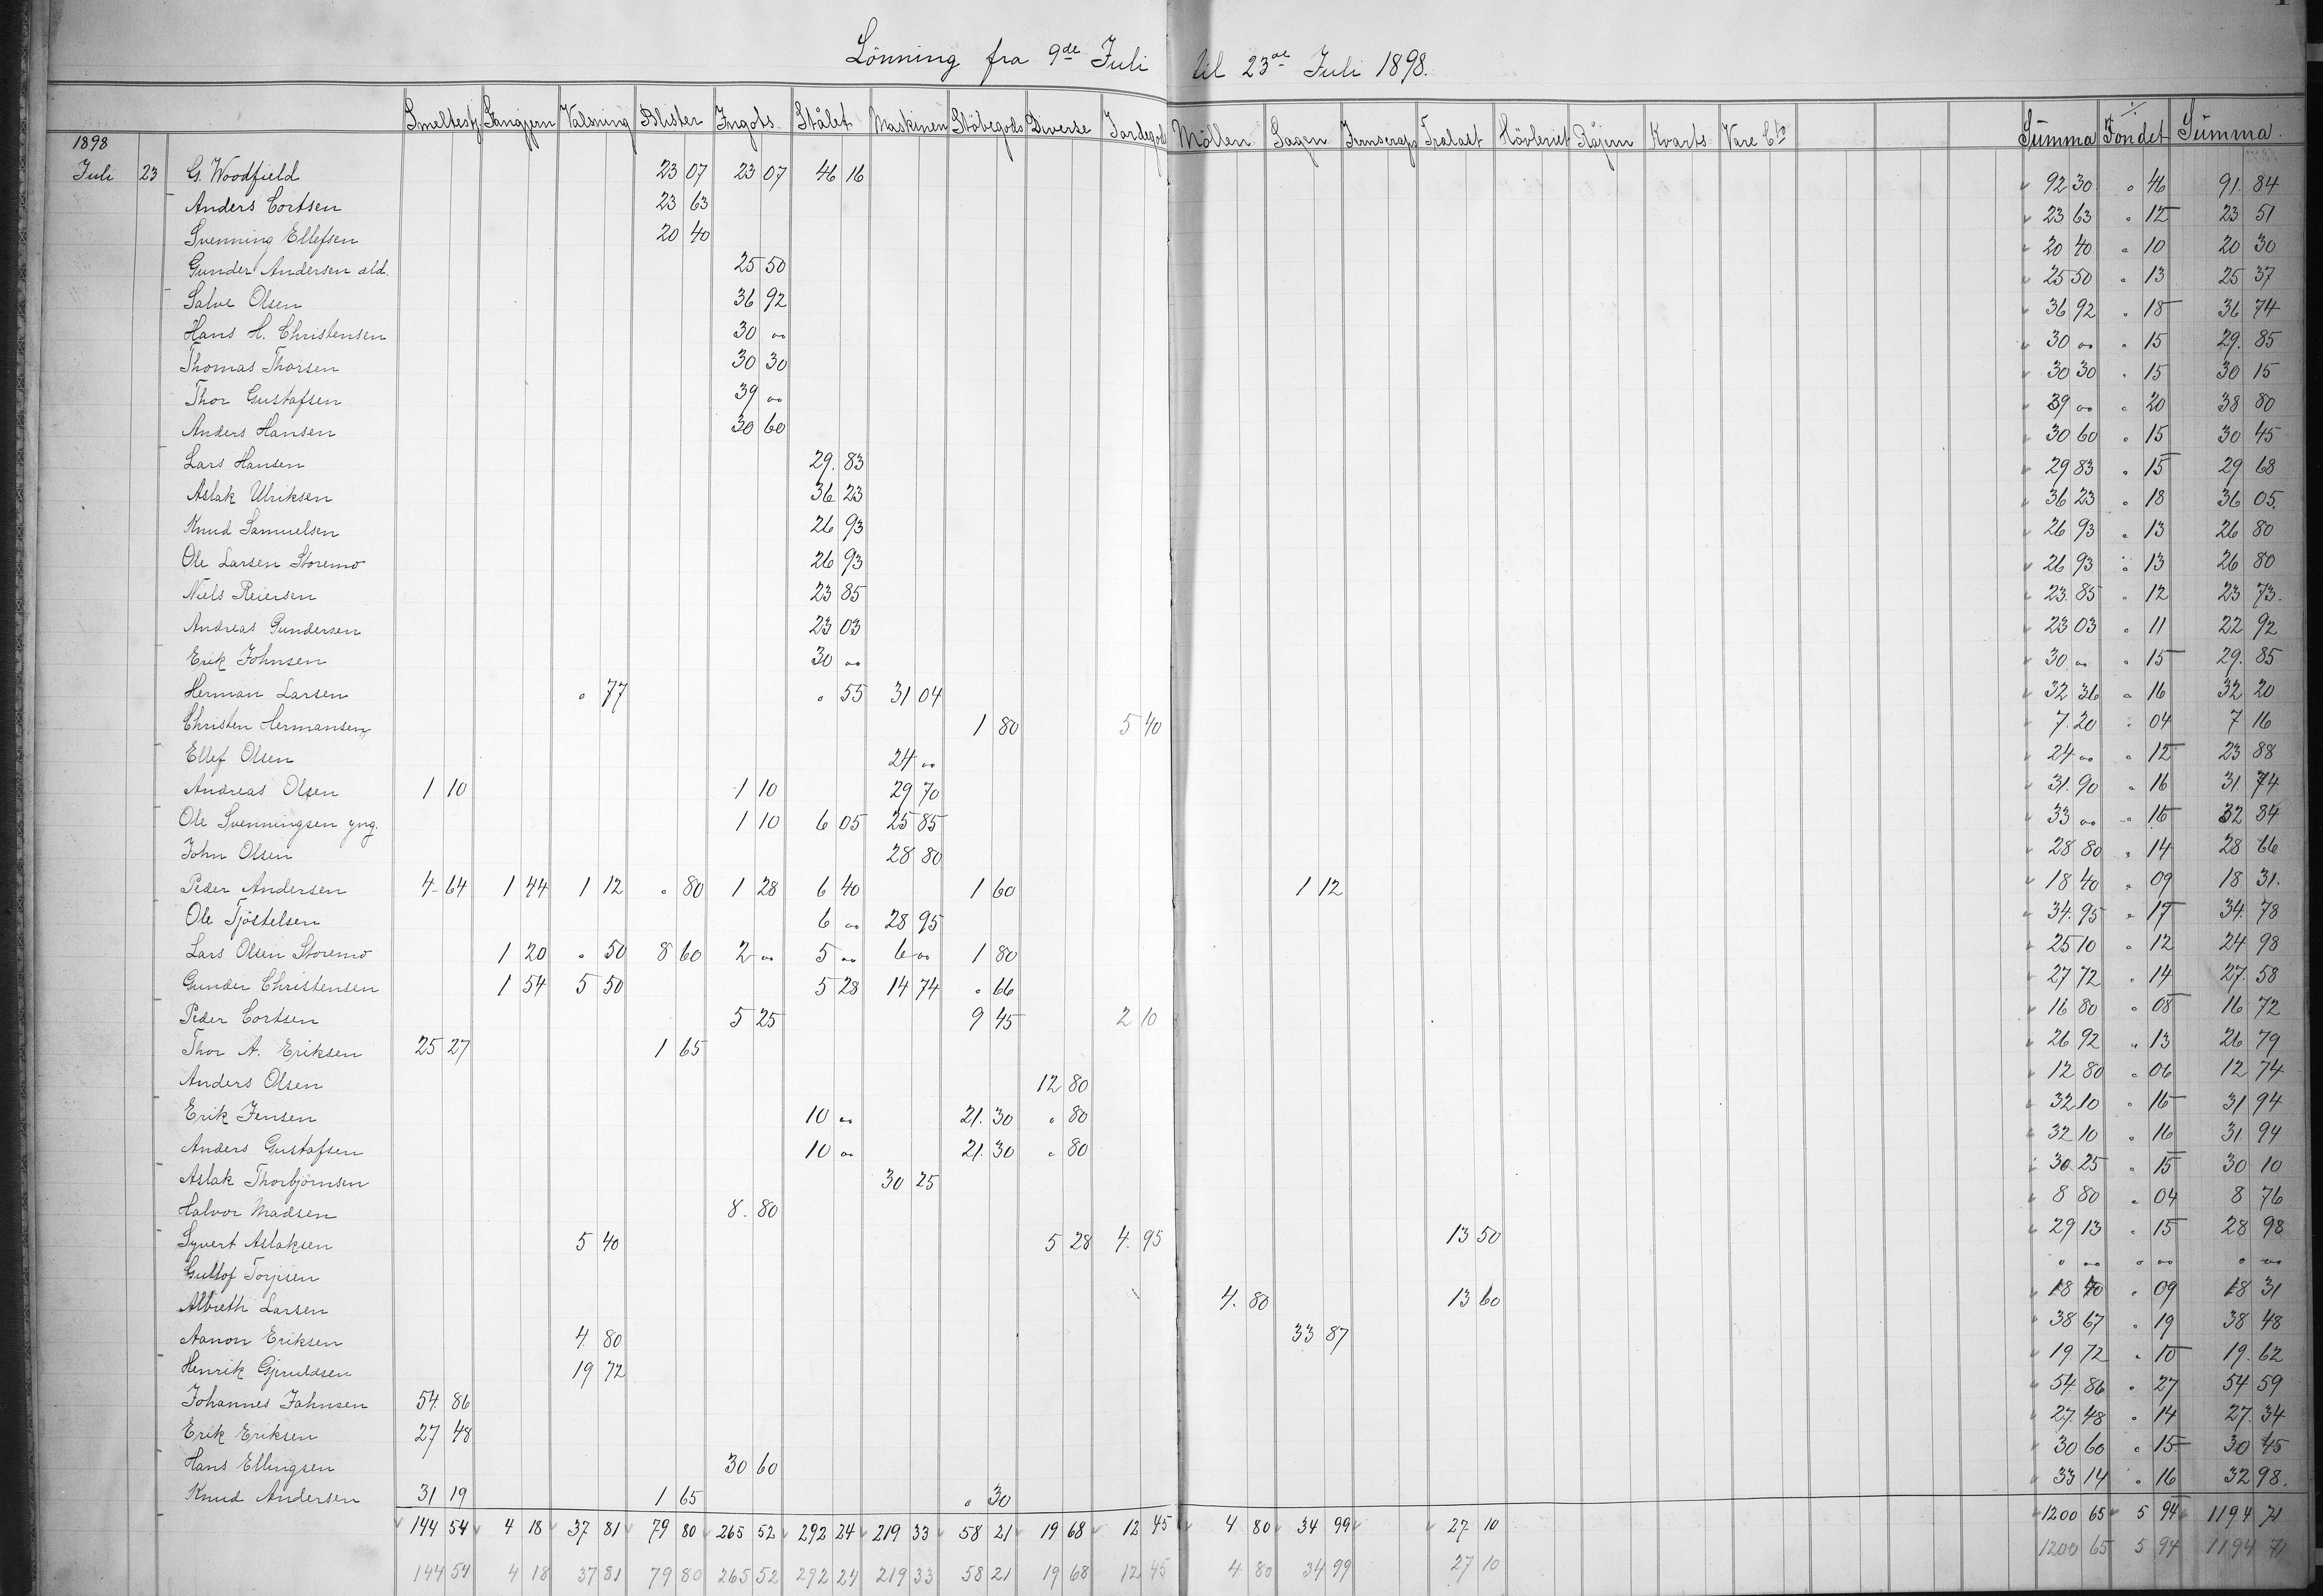 Lönning fra 9de Juli til 23de Juli 1898.
Smeltest. Tangjern Valsning Blister Ingots Stålet Maskinen Stöbegods Diverse Jordegods Möllen Sagen Jernscraps Tralast Hövleriet Råjern Kvarts Vare Cto Summa ÷ Fondet Summa
1898
Juli 23 G. Woodfield 23 07 23 07 46 16 92 30 " 46 91. 84
Anders Cortsen 23 63 23 63 " 12 23 51
Svenning Ellefsen 20 40 20 40 " 10 20 30
Gunder Andersen æld. 25 50 25 50 " 13 25 37
Salve Olsen 36 92 36 92 " 18 36 74
Hans H. Christensen 30 " 30 " " 15 29. 85
Thomas Thorsen 30 30 30 30 " 15 30 15
Thor Gustafsen 39 " 39 " " 20 38 80
Anders Hansen 30 60 30 60 " 15 30 45
Lars Hansen 29. 83 29 83 " 15 29 68
Aslak Ulriksen 36 23 36 23 " 18 36 05.
Knud Samuelsen 26 93 26 93 " 13 26 80
Ole Larsen Storemo 26 93 26 93 " 13 26 80
Niels Reiersen 23 85 23. 85 " 12 23 73.
Andreas Gundersen 23 03 23 03 " 11 22 92
Erik Johnsen 30 " 30 " " 15 29. 85
Herman Larsen " 77 " 55 31 04 32 36 " 16 32 20
Christen Hermansen 1 80 5 40 7. 20 " 04 7 16
Ellef Olsen 24 " 24 " " 12 23 88
Andreas Olsen 1 10 1 10 29 70 31. 90 " 16 31. 74
Ole Svenningsen yng. 1 10 6 05 25 85 33 " " 16 32 84
John Olsen 28 80 28 80 " 14 28 66
Peder Andersen 4 64 1 44 1 12 " 80 1 28 6 40 1 60 1 12 18 40 " 09 18 31.
Ole Tjöstelsen 6 " 28 95 34. 95 " 17 34. 78
Lars Olsen Storemo 1 20 " 50 8 60 2 " 5 " 6 " 1 80 25 10 " 12 24 98
Gunder Christensen 1 54 5 50 5 28 14 74 " 66 27 72 " 14 27. 58
Peder Cortsen 5 25 9 45 2 10 16 80 " 08 16 72
Thor A. Eriksen 25 27 1 65 26 92 " 13 26 79
Anders Olsen 12 80 12 80 " 06 12 74
Erik Jensen 10 " 21. 30 " 80 32 10 " 16 31 94
Anders Gustafsen 10 " 21. 30 " 80 32 10 " 16 31 94
Aslak Thorbjörnsen 30 25 30 25 " 15 30 10
Halvor Madsen 8. 80 8 80 " 04 8 76
Syvert Aslaksen 5 40 5 28 4. 95 13 50 29 13 " 15 28 98
Gullof Torjisen " " " " " "
Albreth Larsen 4. 80 13 60 18 40 " 09 18 31
Aanon Eriksen 4. 80 33 87 38 67 " 19 38 48
Henrik Gjeruldsen 19 72 19 72 " 10 19. 62
Johannes Johnsen 54. 86 54 86 " 27 54 59
Erik Eriksen 27 48 27. 48 " 14 27. 34
Hans Ellingsen 30 60 30 60 " 15 30 45
Knud Andersen 31 19 1 65 " 30 33 14 " 16 32 98.
144 54 4 18 37 81 79 80 265 52 292 24 219 33 58 21 19 68 12 45 4 80 34 99 27 10 1200 65 5 94 1194 71
144 54 4 18 37 81 79 80 265 52 292 24 219 33 58 21 19 68 12 45 4 80 34 99 27 10 1200 65 5 94 1194 71